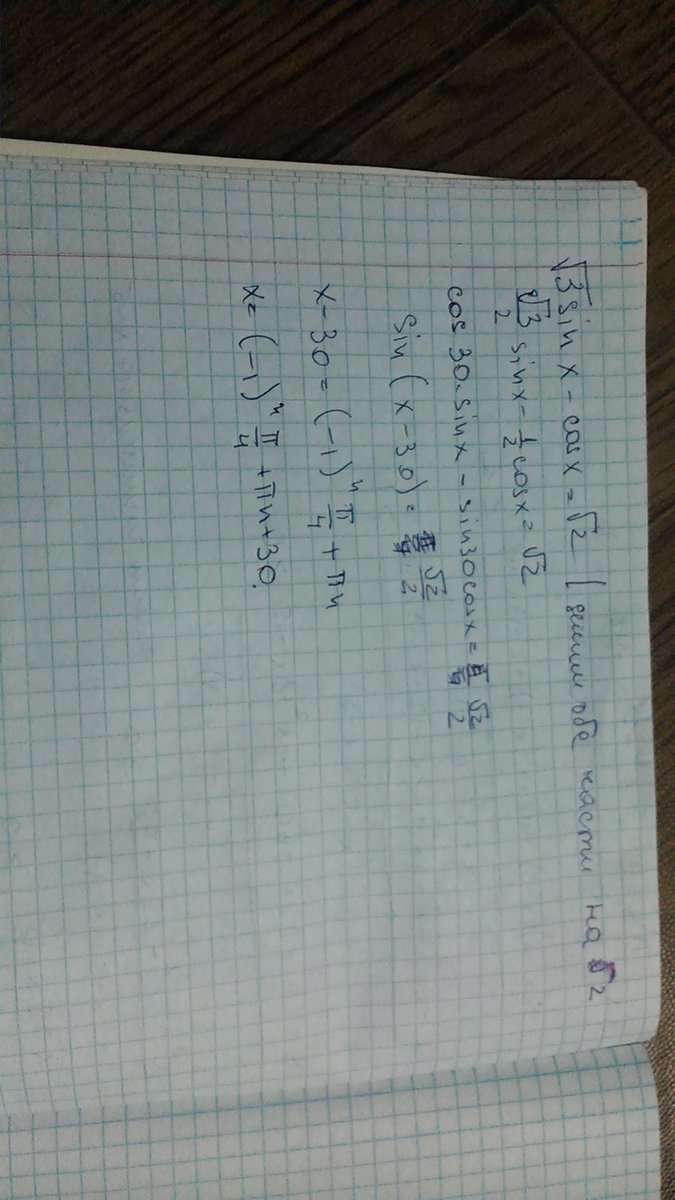 √3 sin x - cos x = √2 | делим обе части на 2
√3/2 sin x - 1/2 cos x = √2
cos 30 · sin x - sin 30 cos x = √2/2
sin (x - 30) = √2/2
x - 30 = (-1)ⁿ π/4 + πn
x = (-1)ⁿ π/4 + πn + 30.